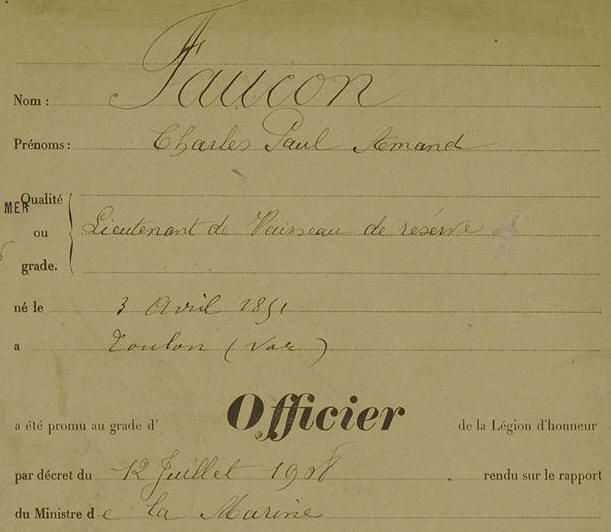 Nom : Faucon
Prénoms : Charles Paul Amand
MER
Qualité
ou Lieutenant de Vaisseau de réserve
grade.
né le 3 Avril 1851
a Toulon (Var)
a été promu au grade d' Officier de la Légion d'honneur
par décret du 12 Juillet 1908 rendu sur le rapport
du Ministre de la Marine